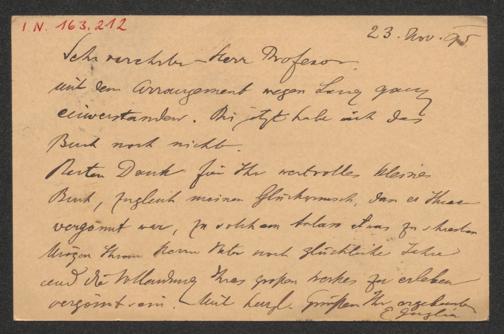 I.N. 163.212
23. Nov. 95
Sehr verehrter Herr Profesor
mit dem Arrangement wegen Lang ganz
einverstanden. Bis jetzt habe ich das
Buch noch nicht.
Besten Dank für Ihr wertvolles kleines
Buch, zugleich meinen Glückwunsch, dass es Ihnen
vergönnt war, zu solchem Anlass etwas zu schreiben
Mögen Ihrem Herrn Vater noch glückliche Jahre
und die Vollendung Ihres großen Werkes zu erleben
vergönnt sein. Mit herzl. Grüßen Ihr ergebenster
E.